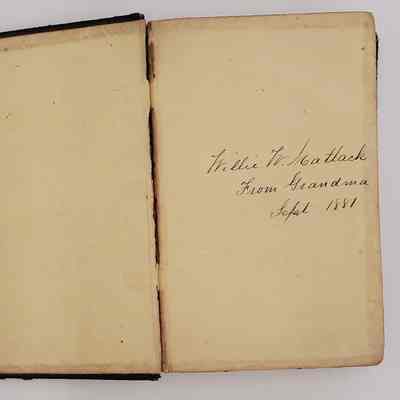 Willie W. Matlack
From Grandma
Sept 1881